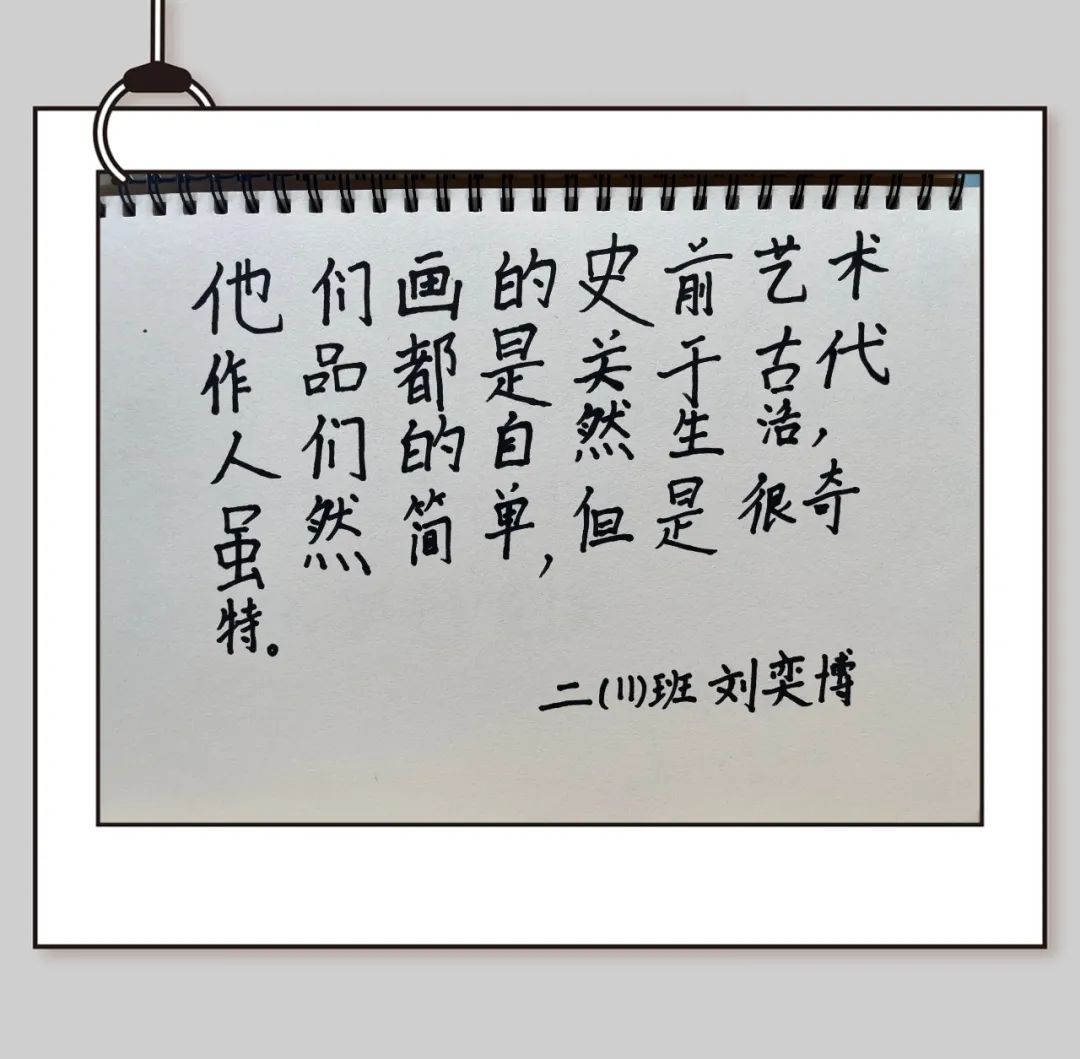 他们画的史前艺术
作品都是关于古代
人们的自然生活，
虽然简单，但是很奇
特。
二(11)班 刘奕博